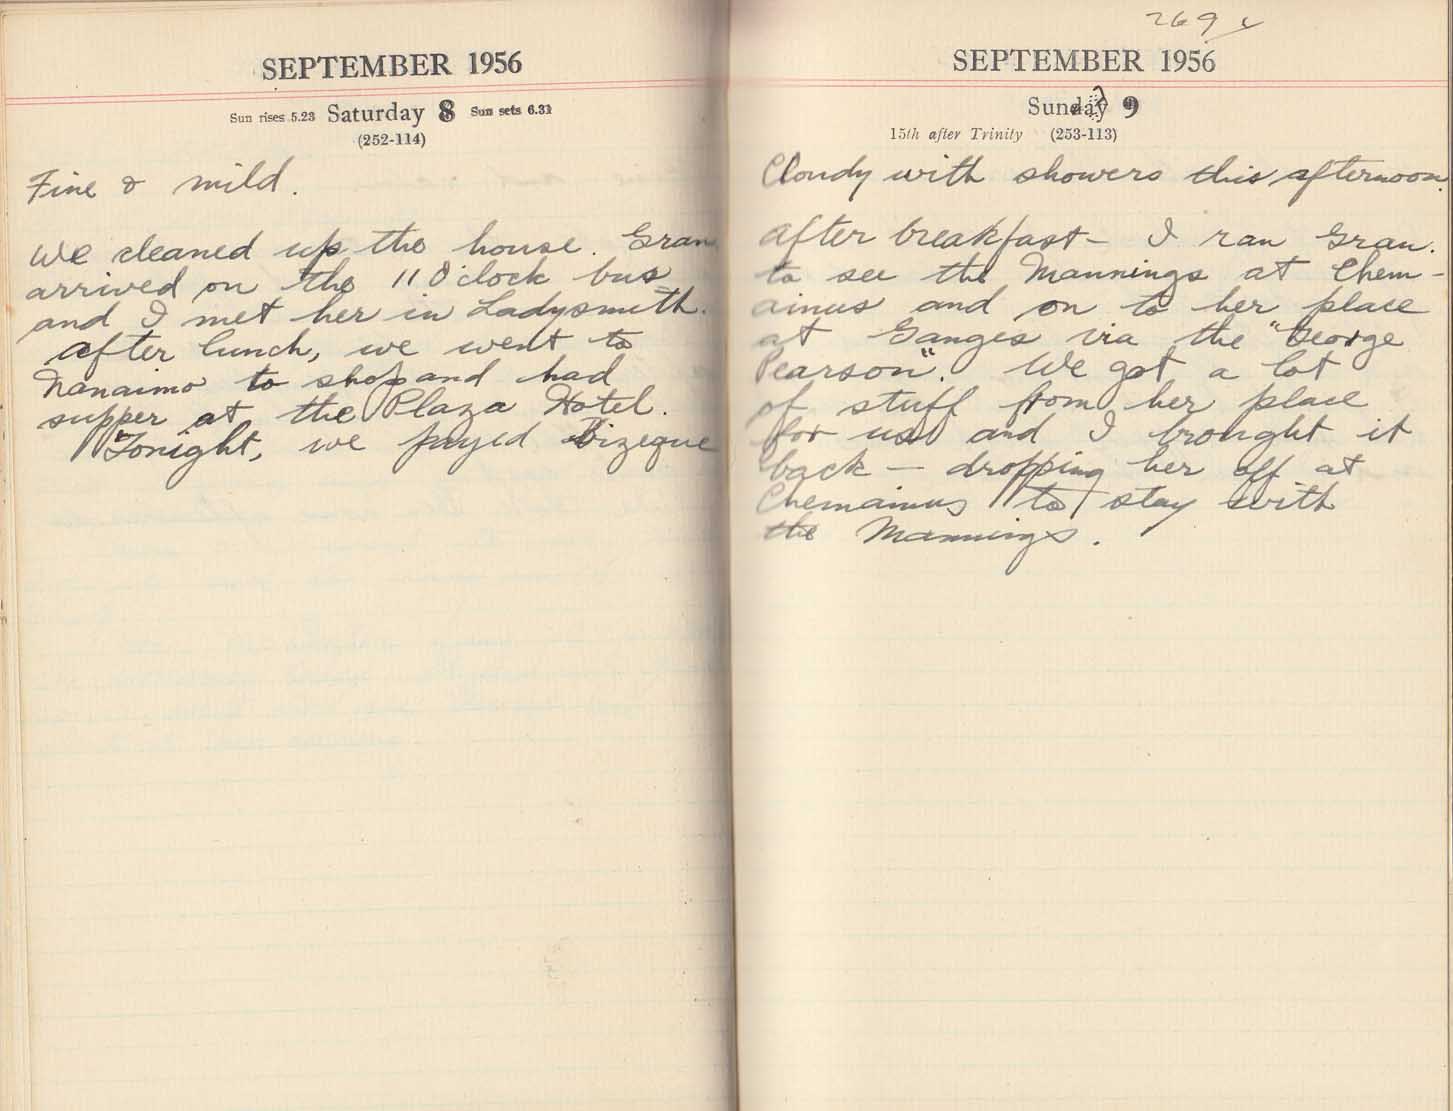 SEPTEMBER 1956
Sun rises 5.23 Saturday 8 Sun sets 6.31
(252-114)
Fine & mild.
We cleaned up the house. Gran
arrived on the 11 O'clock bus
and I met her in Ladysmith.
After lunch, we went to
Nanaimo to shop and had
supper at the Plaza Hotel.
Tonight, we payed Bizeque
269
SEPTEMBER 1956
Sunday 9
15th after Trinity (253-113)
Cloudy with showers this afternoon.
After breakfast - I ran Gran.
to see the Mannings at Chem-
ainus and on to her place
at Ganges via the "George
Pearson". We got a lot
of stuff from her place
for us and I brought it
back - dropping her off at
Chemainus to stay with
the Mannings.